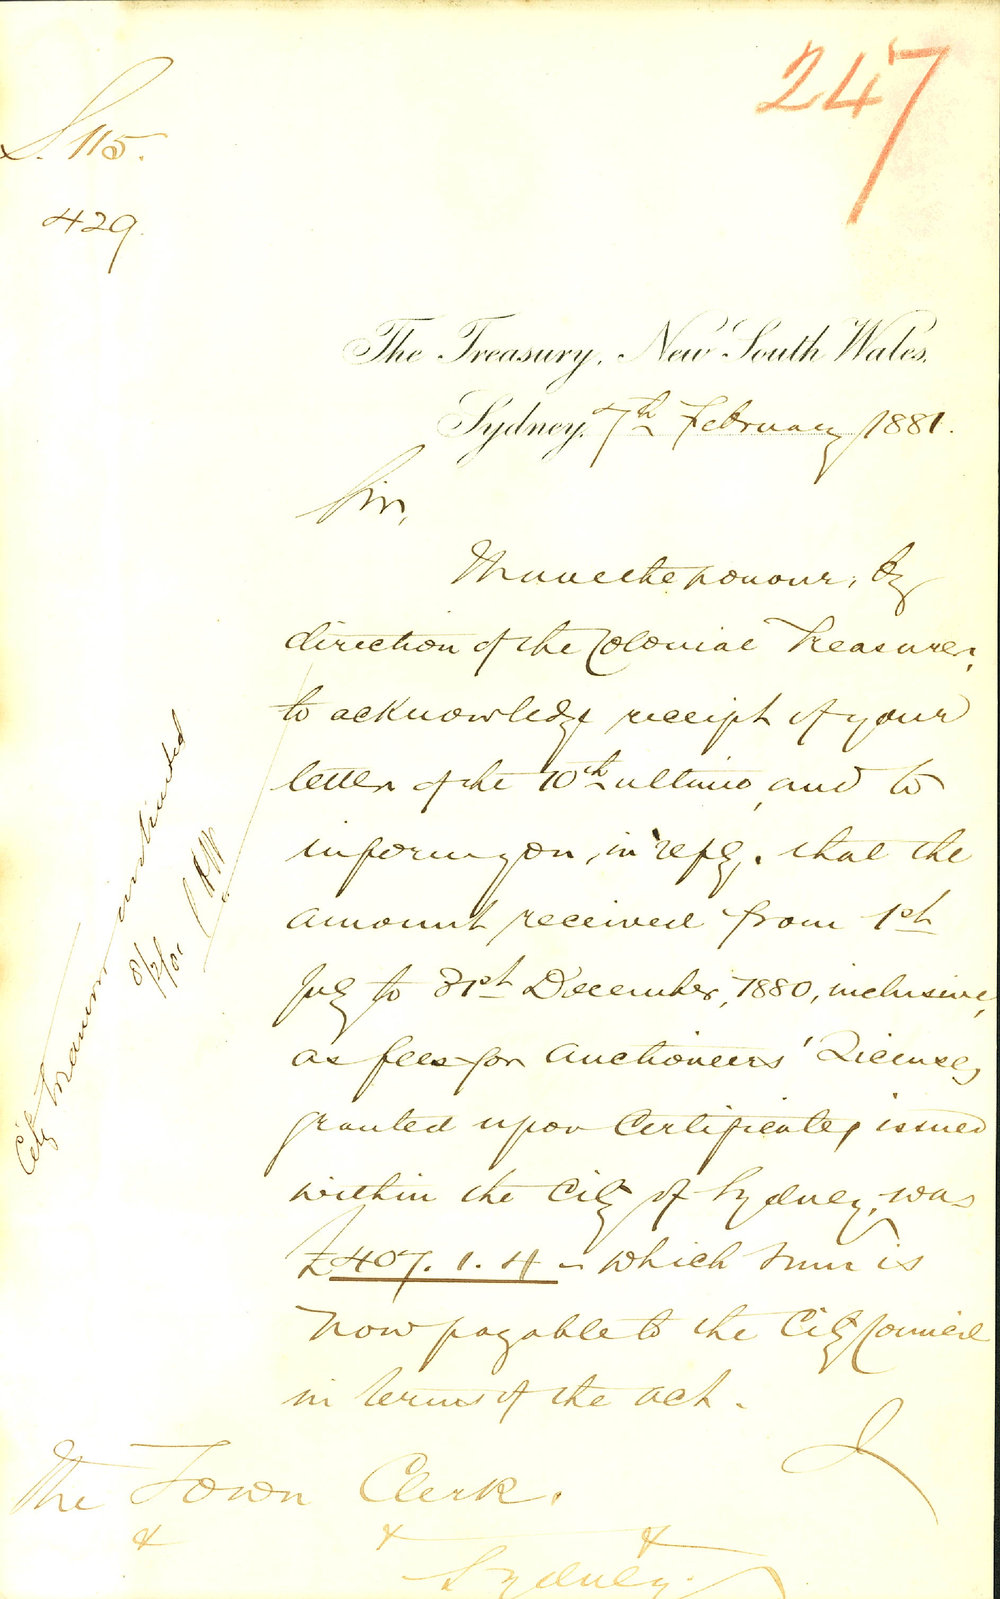 247
S. 115.
429.
The Treasury, New South Wales,
Sydney, 7th February 1881.
Sir,
I have the honour, by
direction of the Colonial Treasurer,
to acknowledge receipt of your
letter of the 10th ultimo, and to
inform you, in reply, that the
amount received from 1st
July to 31st December, 1880, inclusive,
as fees for Auctioneers' Licenses
granted upon Certificates issued
within the City of Sydney, was
£407. 1. 4 - which sum is
now payable to the City Council
in terms of the Act.
I
The Town Clerk.
& & &
Sydney.
City Treasurer
8/2/81